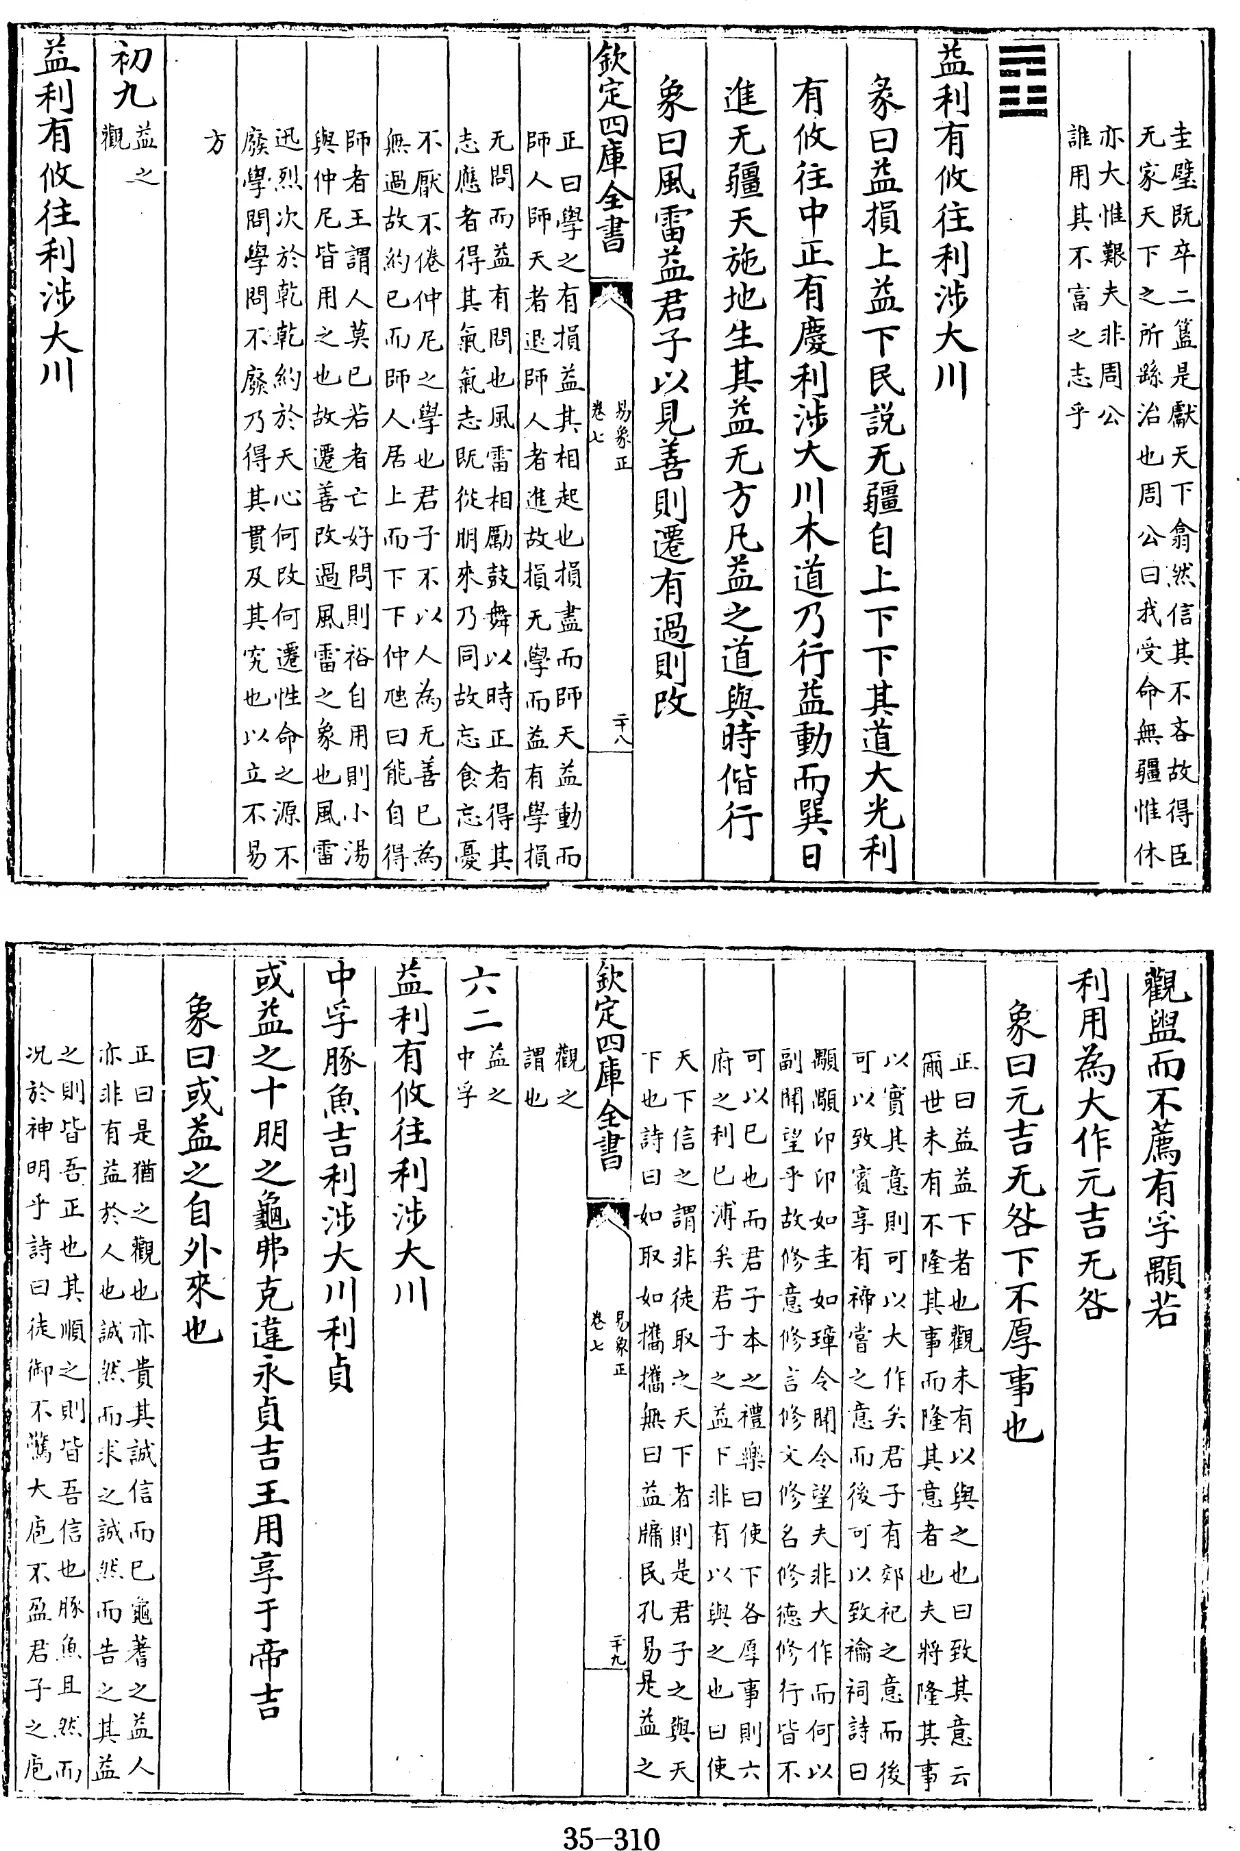 圭璧既卒二簋是獻天下翕然信其不吝故得臣
无家天下之所繇治也周公曰我受命無疆惟休
亦大惟艱夫非周公
誰用其不富之志乎
益利有攸往利涉大川
彖曰益損上益下民説无疆自上下下其道大光利
有攸往中正有慶利涉大川木道乃行益動而巽日
進无疆天施地生其益无方凡益之道與時偕行
象曰風雷益君子以見善則遷有過則改
欽定四庫全書
易象正
卷七
二十八
正曰學之有損益其相起也損盡而師天益動而
師人師天者退師人者進故損无學而益有學損
无問而益有問也風雷相勵鼓舞以時正者得其
志應者得其氣氣志既從朋來乃同故忘食忘憂
不厭不倦仲尼之學也君子不以人為无善已為
無過故約已而師人居上而下下仲虺曰能自得
師者王謂人莫已若者亡好問則裕自用則小湯
與仲尼皆用之也故遷善改過風雷之象也風雷
迅烈次於乾乾約於天心何改何遷性命之源不
廢學問學問不廢乃得其貫及其究也以立不易
方
初九
益之
觀
益利有攸往利涉大川
觀盥而不薦有孚顒若
利用為大作元吉无咎
象曰元吉无咎下不厚事也
正曰益益下者也觀未有以與之也曰致其意云
爾世未有不隆其事而隆其意者也夫將隆其事
以實其意則可以大作矣君子有郊祀之意而後
可以致賓享有禘嘗之意而後可以致禴祠詩曰
顒顒卬卬如圭如璋令聞令望夫非大作而何以
副聞望乎故修意修言修文修名修德修行皆不
可以已也而君子本之禮樂曰使下各厚事則六
府之利已溥矣君子之益下非有以與之也曰使
天下信之謂非徒取之天下者則是君子之與天
下也詩曰如取如攜攜無曰益牖民孔易是益之
欽定四庫全書
易象正
卷七
二十九
觀之
謂也
六二
益之
中孚
益利有攸往利涉大川
中孚豚魚吉利涉大川利貞
或益之十朋之龜弗克違永貞吉王用享于帝吉
象曰或益之自外來也
正曰是猶之觀也亦貴其誠信而已龜蓍之益人
亦非有益於人也誠然而求之誠然而告之其益
之則皆吾正也其順之則皆吾信也豚魚且然而
况於神明乎詩曰徒御不驚大庖不盈君子之庖
35-310